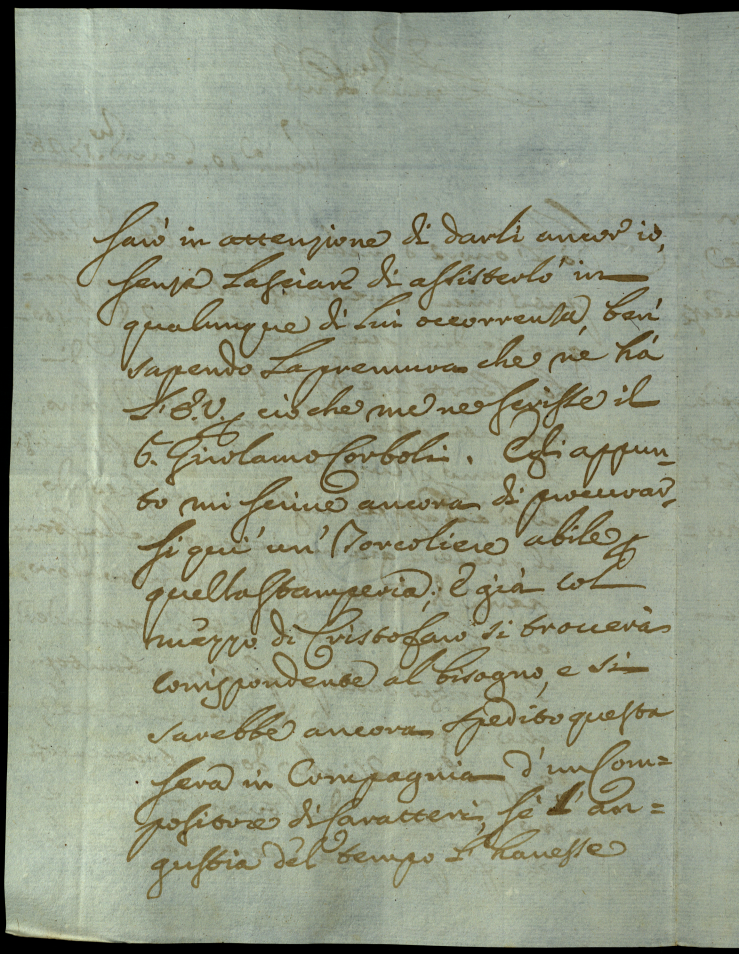 sarò in attenzione di darli ancor io,
senza Lasciare di assisterlo in
qualunque di Lui occorrenza, ben
sapendo La premura che né há
L'E.V. e ciò che me ne scrisse il
S. Girolamo Corboli. Egli appun=
to mi scrive ancora di procurar=
si quì un' Torcoliere abile p
quella Stamperia; E già col
mezzo di Cristofano si trouerà
corrispondente al bisogno, e si
sarebbe ancora spedito questa
sera in Compagnia d'un Com=
positore di Caratteri, sè l'an=
gustia del tempo l'hauesse